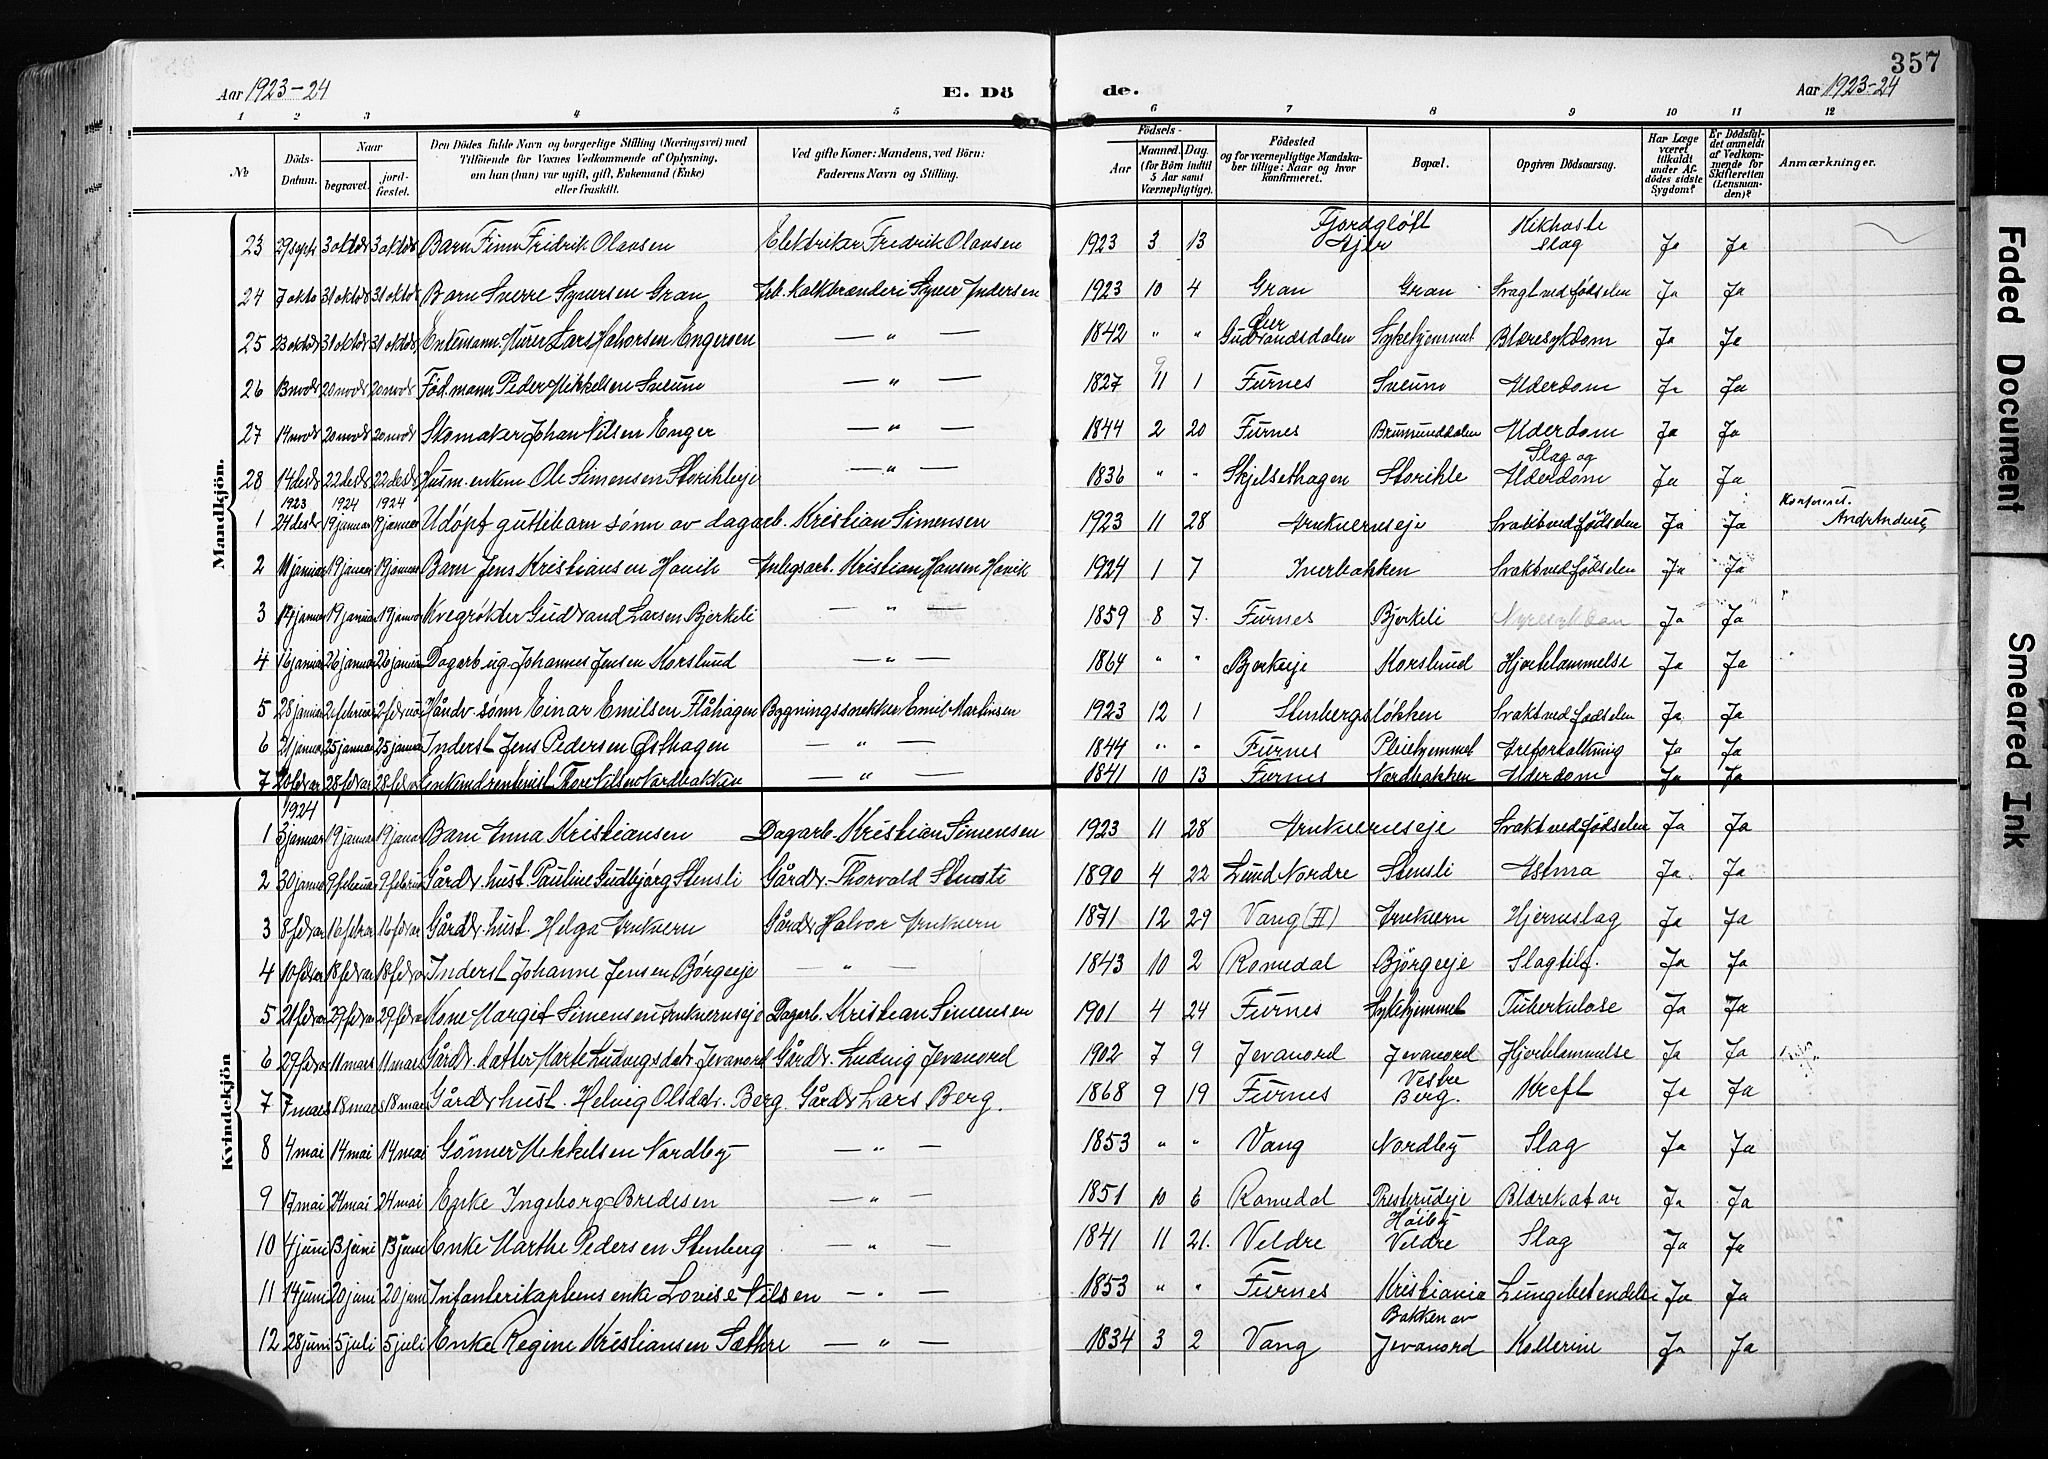 357
Aar 1923-24 E. Dö de. Aar 1923-24
1 2 3 4 5 6 7 8 9 10 11 12
№ Döds-Datum. Naar begravet. jordfæstet. Den Dödes fulde Navn og borgerlige Stilling (Næringsvei) med Tilföiende for Voxnes Vedkommende af Oplysning, om han (hun) var ugift, gift, Enkemand (Enke) eller fraskilt. Ved gifte Koner: Mandens, ved Börn: Faderens Navn og Stilling. Födsels- Aar Maaned. Dag. (for Börn indtil 5 Aar samt Værnepligtige). Födested og for værnepligtige Mandskaber tillige: Naar og hvor konfirmeret. Bopæl. Opgiven Dödsaarsag. Har Læge været tilkaldt under Afdödes sidste Sygdom? Er Dödsfaldet anmeldt af Vedkommende for Skifteretten (Lensmanden)? Anmærkninger.
Mandkjön.
23 29 sept 3 oktbr 3 oktbr Barn Finn Fridrik Olausen Elektriker Fredrik Olausen 1923 3 13 Fjordgløtt Kikhoste Slag Ja Ja
24 7 okto 31 oktbr 31 oktbr Barn Sverre Syversen Gran Arb. kalkbrænderi Syver Andersen 1923 10 4 Gran Gran Svagt ved fødselen Ja Ja
25 23 oktbr 31 oktbr 31 oktbr Enkemann. Murer Lars Halvorsen Engersen — " — 1842 " " Gudbrandsdalen Sykehjemmet Blæresykdom Ja Ja
26 13 novbr 20 novbr 20 novbr Föd. mann Peder Mikkelsen Sveum — " — 1827 11 1 Furnes Sveum Alderdom Ja Ja
27 14 novbr 20 novbr 20 novbr Skomaker Johan Nilsen Enger — " — 1844 2 20 Furnes Brumunddalen Alderdom Ja Ja
28 14 desbr 22 desbr 22 desbr Husm. enkem Ole Simensen Storihleeje — " — 1836 " " Skjelsethagen Storihle Slag og Alderdom Ja Ja
1923 1924 1924
1 24 desbr 19 januar 19 januar Udöpt guttebarn sønn av dagarb. Kristian Simensen 1923 11 28 Arnkverneje Svakt ved fødselen Ja Ja
2 11 januar 19 januar 19 januar Barn Jens Kristiansen Hovik Anlegsarb. Kristian Hansen Hovik 1924 1 7 Iverbakken Svakt ved fødselen Ja Ja
3 14 januar 19 januar 19 januar Kvegrøkter Gudbrand Larsen Bjerkeli — " — 1859 8 7 Furnes Bjerkeli Nyresykdom Ja Ja "
4 16 januar 26 januar 26 januar Dagarb. ug. Johannes Jensen Korslund — " — 1864 " " Bjerkeeje Korslund Hjertelammelse Ja Ja
5 28 januar 2 februar 2 februar Håndv. sønn Einar Emilsen Flåhagen Bygningssnekker Emil Martinsen 1923 12 1 Stenbergsløkken Svakt ved fødselen Ja Ja
6 21 januar 25 januar 25 januar Inderst Jens Pedersen Østhagen — " — 1844 " " Furnes Pleiehjemmet Areforkalkning Ja Ja
7 20 febrar 28 febrar 28 febrar Thore Nilsen Nordbakken — " — 1841 10 13 Furnes Nordbakken Alderdom Ja Ja
Kvindekjön
1924
1 3 januar 19 januar 19 januar Barn Anna Kristiansen Dagarb. Kristian Simensen 1923 11 28 Arnkverneseje Svakt ved fødselen Ja Ja
2 30 januar 9 februar 9 februar Gårdbr. hust. Pauline Gudbjørg Stensli Gårdbr. Thorvald 1890 4 22 Lund Nordre Stensli Astma Ja Ja
3 8 febrar 16 febrar 16 febrar Gårdbr. hust. Helga Arnkvern Gårdbr Halvor Arnkvern 1871 12 29 Vang (H) Arnkvern Hjerneslag Ja Ja
4 10 febrar 18 febrar 18 febrar Inderst Johanne Jensen Børgeeje — " — 1843 10 2 Romedal Björgeeje Slagtilf. Ja Ja
5 21 febrar 29 febrar 29 febrar Kone Margit Simensen Arnkverneeje Dagarb. Kristian Simensen 1901 4 24 Furnes Sykehjemmet Tuberkulose Ja Ja
6 29 febrar 11 mars 11 mars Gårdbr. datter Marte Ludvigsdatr Jevanord Gårdbr. Ludvig Jevanord 1902 7 9 Jevanord Jevanord Hjertelammelse Ja Ja
7 7 mars 18 mars 18 mars Gårdbr hust. Helvig Olsdatr. Berg. Gårdbr Lars Berg. 1868 9 19 Furnes Vestre Berg. Kreft Ja Ja
8 4 mai 14 mai 14 mai Gønner Mikkelsen Nordby — " — 1853 " " Vang Nordby Slag Ja Ja
9 17 mai 24 mai 24 mai Enke Ingeborg Bredesen — " — 1851 10 6 Romedal Presterudeje Blærekatar Ja Ja
10 4 juni 13 juni 13 juni Enke Marthe Pedersen Stenberg — " — 1841 11 21. Veldre Höiby Veldre Slag Ja Ja
11 14 juni 20 juni 20 juni Infanterikapteins enke Lovise Nilsen — " — 1853 " " Furnes Kristiania Lungebetendelse Ja Ja
12 28 juni 5 juli 5 juli Enke Regine Kristiansen Sæthre — " — 1834 3 2 Vang Bakken av Jevanord Kollerine Ja Ja
Faded Document
Smeared Ink